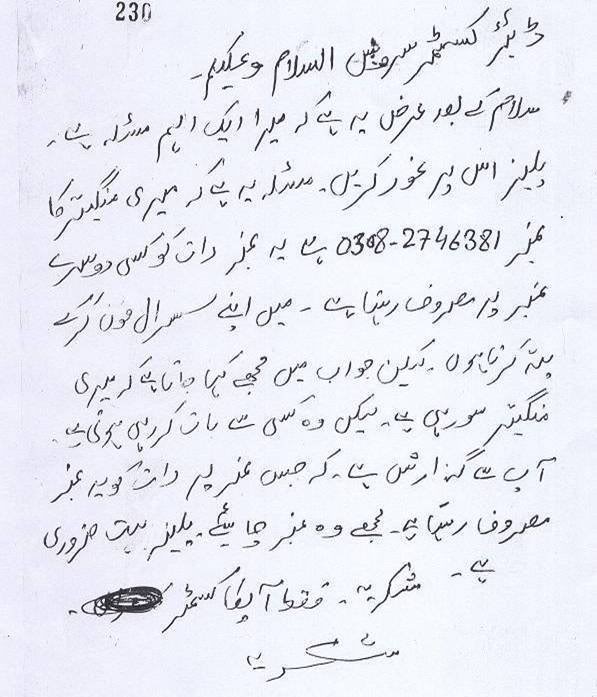 230
ڈیئر کسٹمر سروس السلام وعلیکم۔
سلام کے بعد عرض یہ ہے کہ میرا ایک اہم مسئلہ ہے۔
پلیز اس پر غور کریں۔ مسئلہ یہ ہے کہ میری منگیتر کا
نمبر 0308-2746381 ہے یہ نمبر رات کو کسی دوسرے
نمبر پر مصروف رہتا ہے۔ میں اپنے سسرال فون کرکے
پتہ کرتا ہوں۔ لیکن جواب میں مجھے کہا جاتا ہے کہ میری
منگیتر سو رہی ہے۔ لیکن وہ کسی سے بات کر رہی ہوتی ہے۔
آپ سے گزارش ہے۔ کہ جس نمبر پر رات کو یہ نمبر
مصروف رہتا ہے۔ مجھے وہ نمبر چاہیئے۔ پلیز بہت ضروری
ہے۔ شکریہ۔ فقط آپکا کسٹمر
شکریہ